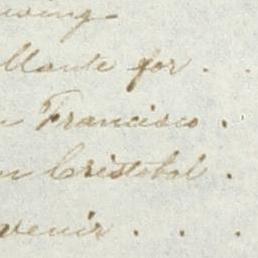 llante for . .
n Francisco .
n Cristobal .
venir . . .